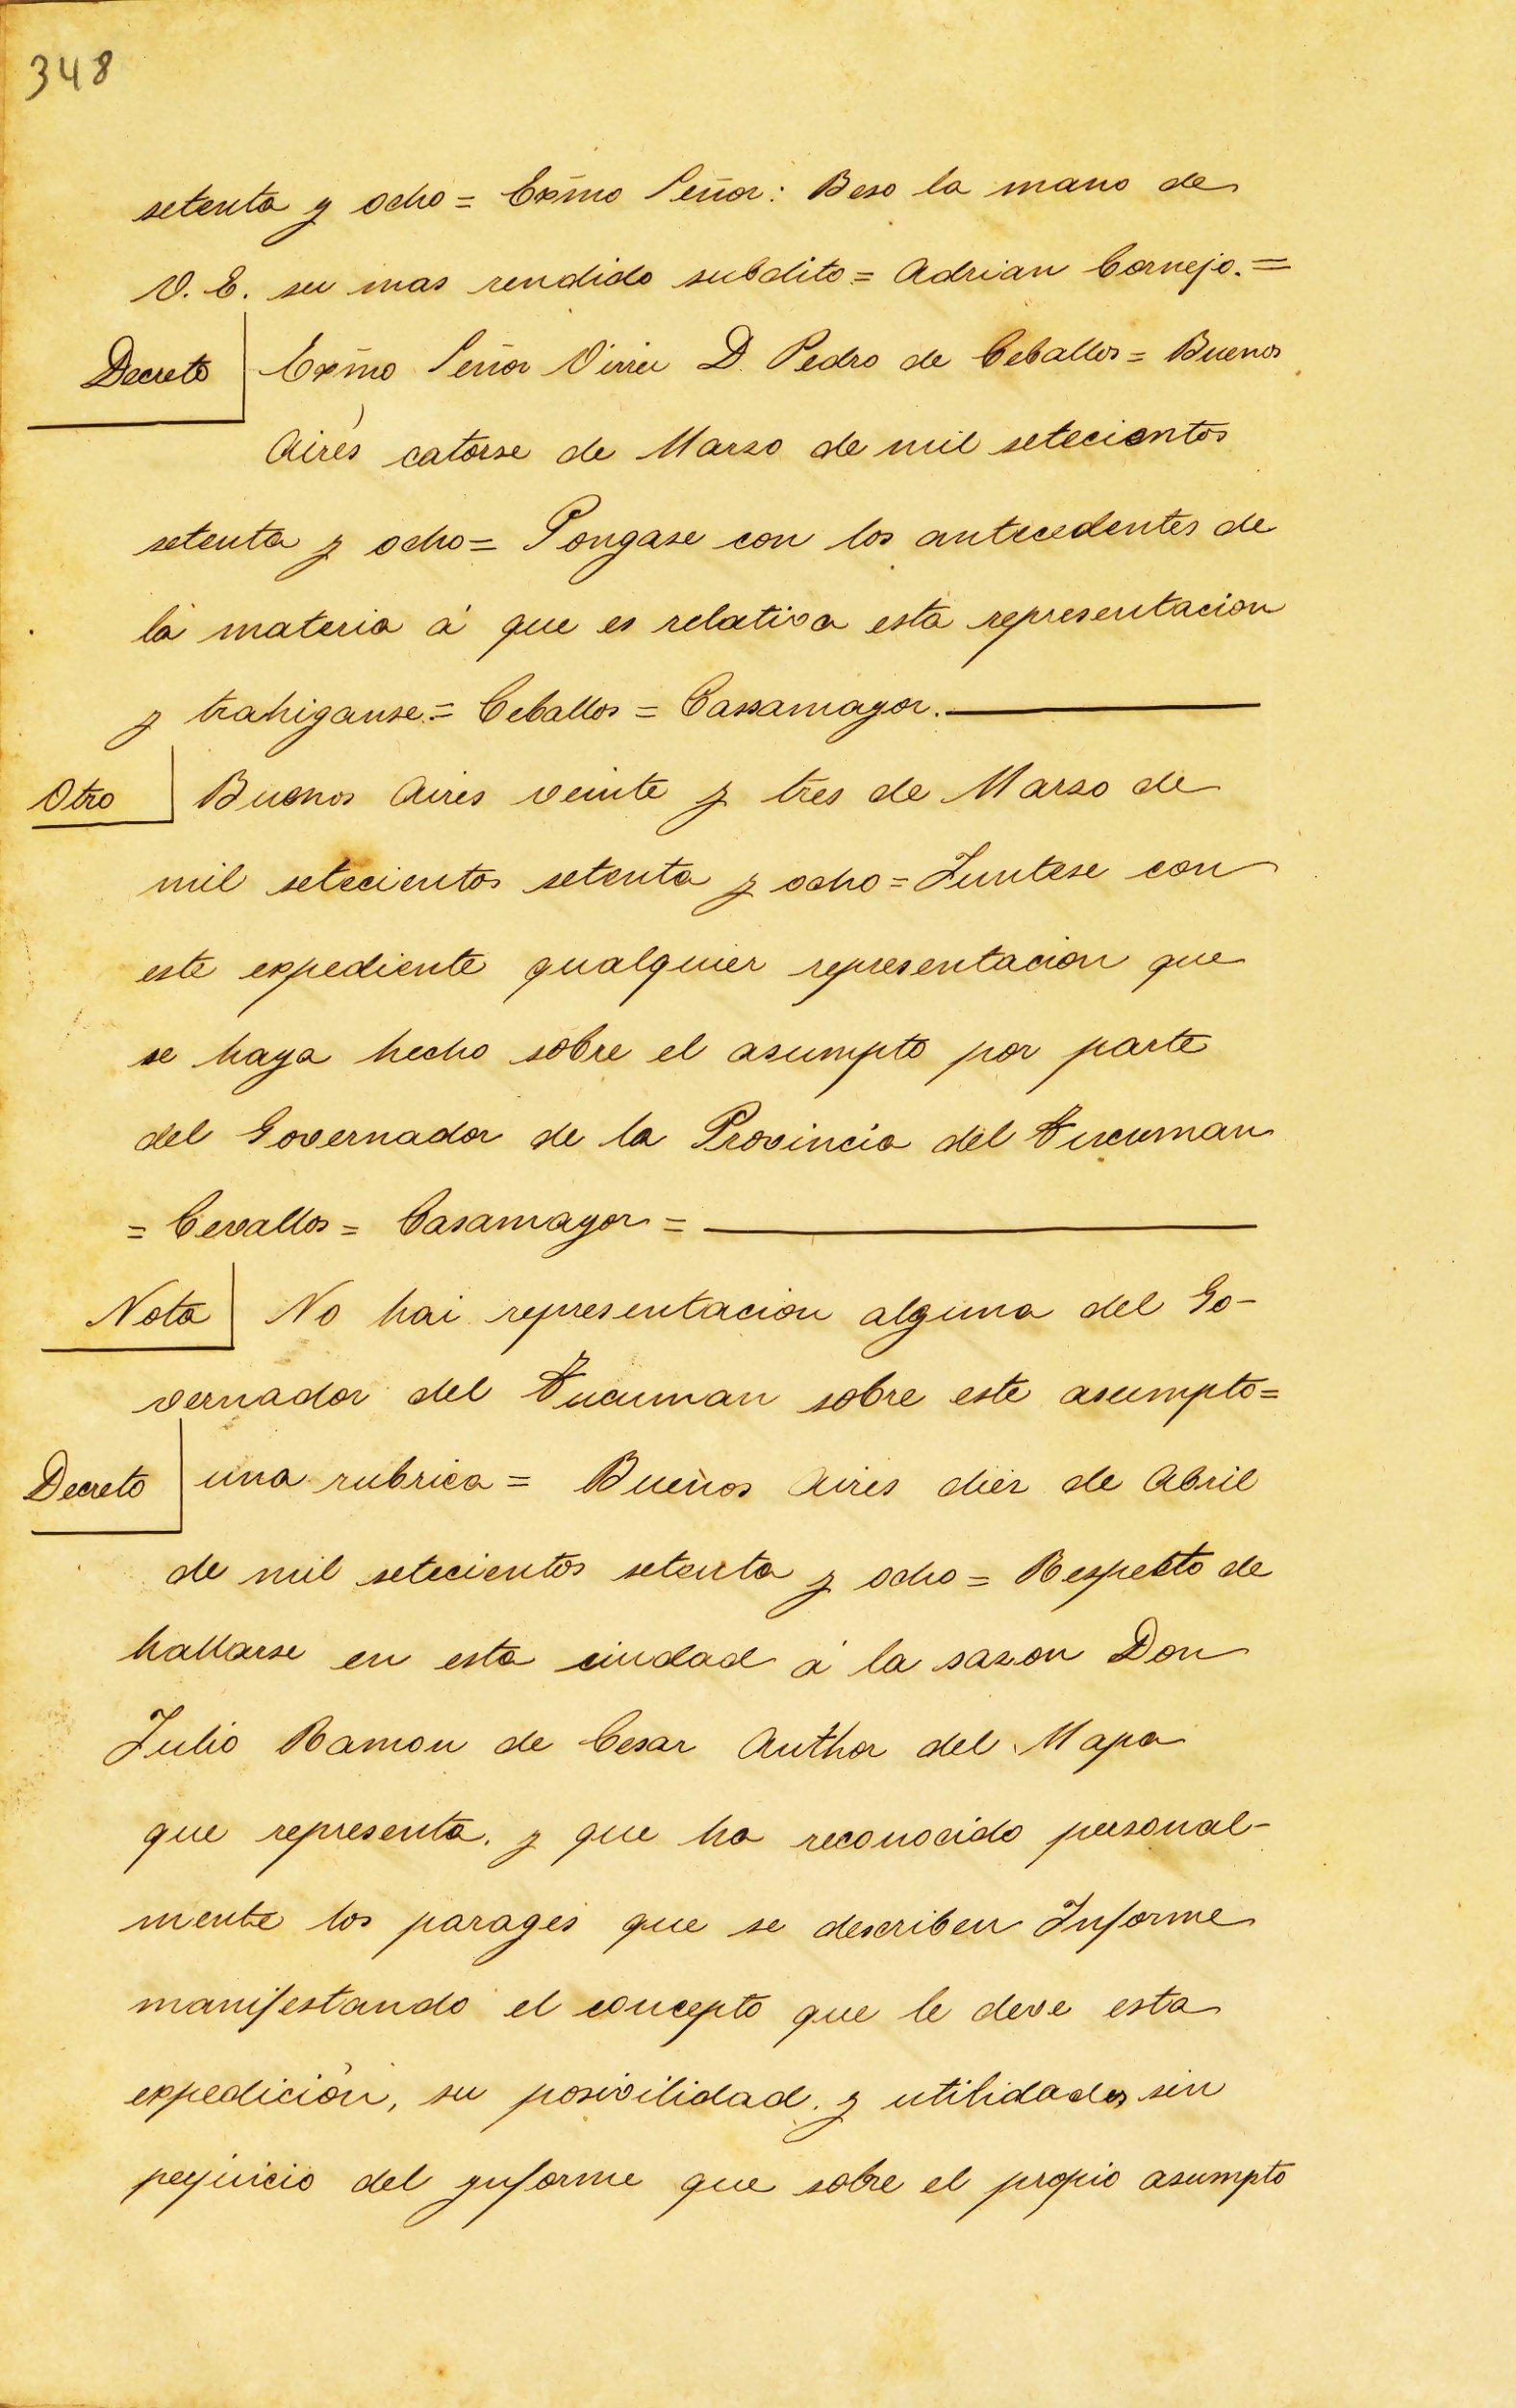 348
setenta y ocho = Exm̃o Señor: Beso la mano de
V. E. su mas rendido subdito = Adrian Cornejo. =
Decreto Exm̃o Señor Virrei D. Pedro de Ceballos = Buenos
Aires catorse de Marzo de mil setecientos
setenta y ocho = Pongase con los antecedentes de
la materia á que es relativa esta representacion
y trahiganse. = Ceballos = Cassamayor.
Otro Buenos Aires veinte y tres de Marzo de
mil setecientos setenta y ocho = Juntese con
este expediente qualquier representacion que
se haya hecho sobre el asumpto por parte
del Governador de la Provincia del Tucuman
= Cevallos = Casamayor =
Nota No hai representacion alguna del Go-
vernador del Tucuman sobre este asumpto =
Decreto una rubrica = Buenos Aires diez de Abril
de mil setecientos setenta y ocho = Respecto de
hallarse en esta ciudad á la sazon Don
Julio Ramon de Cesar Author del Mapa
que representa. y que ha reconocido personal-
mente los parages que se describen Informe
manifestando el concepto que le deve esta
expedición, su posivilidad. y utilidades sin
perjuicio del ynforme que sobre el propio asumpto